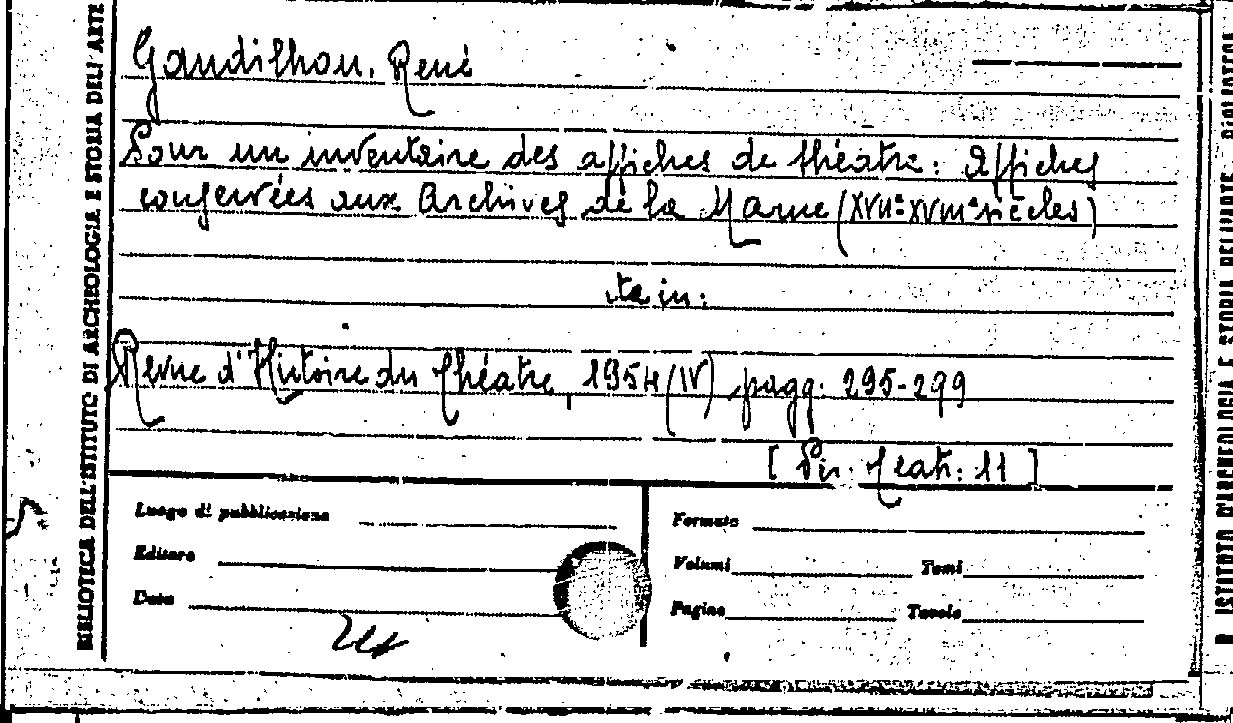 BIBLIOTECA DELL'ISTITUTO DI ARCHEOLOGIA E STORIA DELL'ARTE
Gandilhon, René
Pour un inventaire des affiches de théatre: Affiches
conservées aux Archives de la Marne (XVIIe-XVIIIe siècles)
sta in:
Revue d'Histoire du Théatre, 1954 (IV) pagg. 295-299
[ Riv. Teatr. 11 ]
Luogo di pubblicazione
Editore
Data
Formato
Volumi Tomi
Pagine Tavole